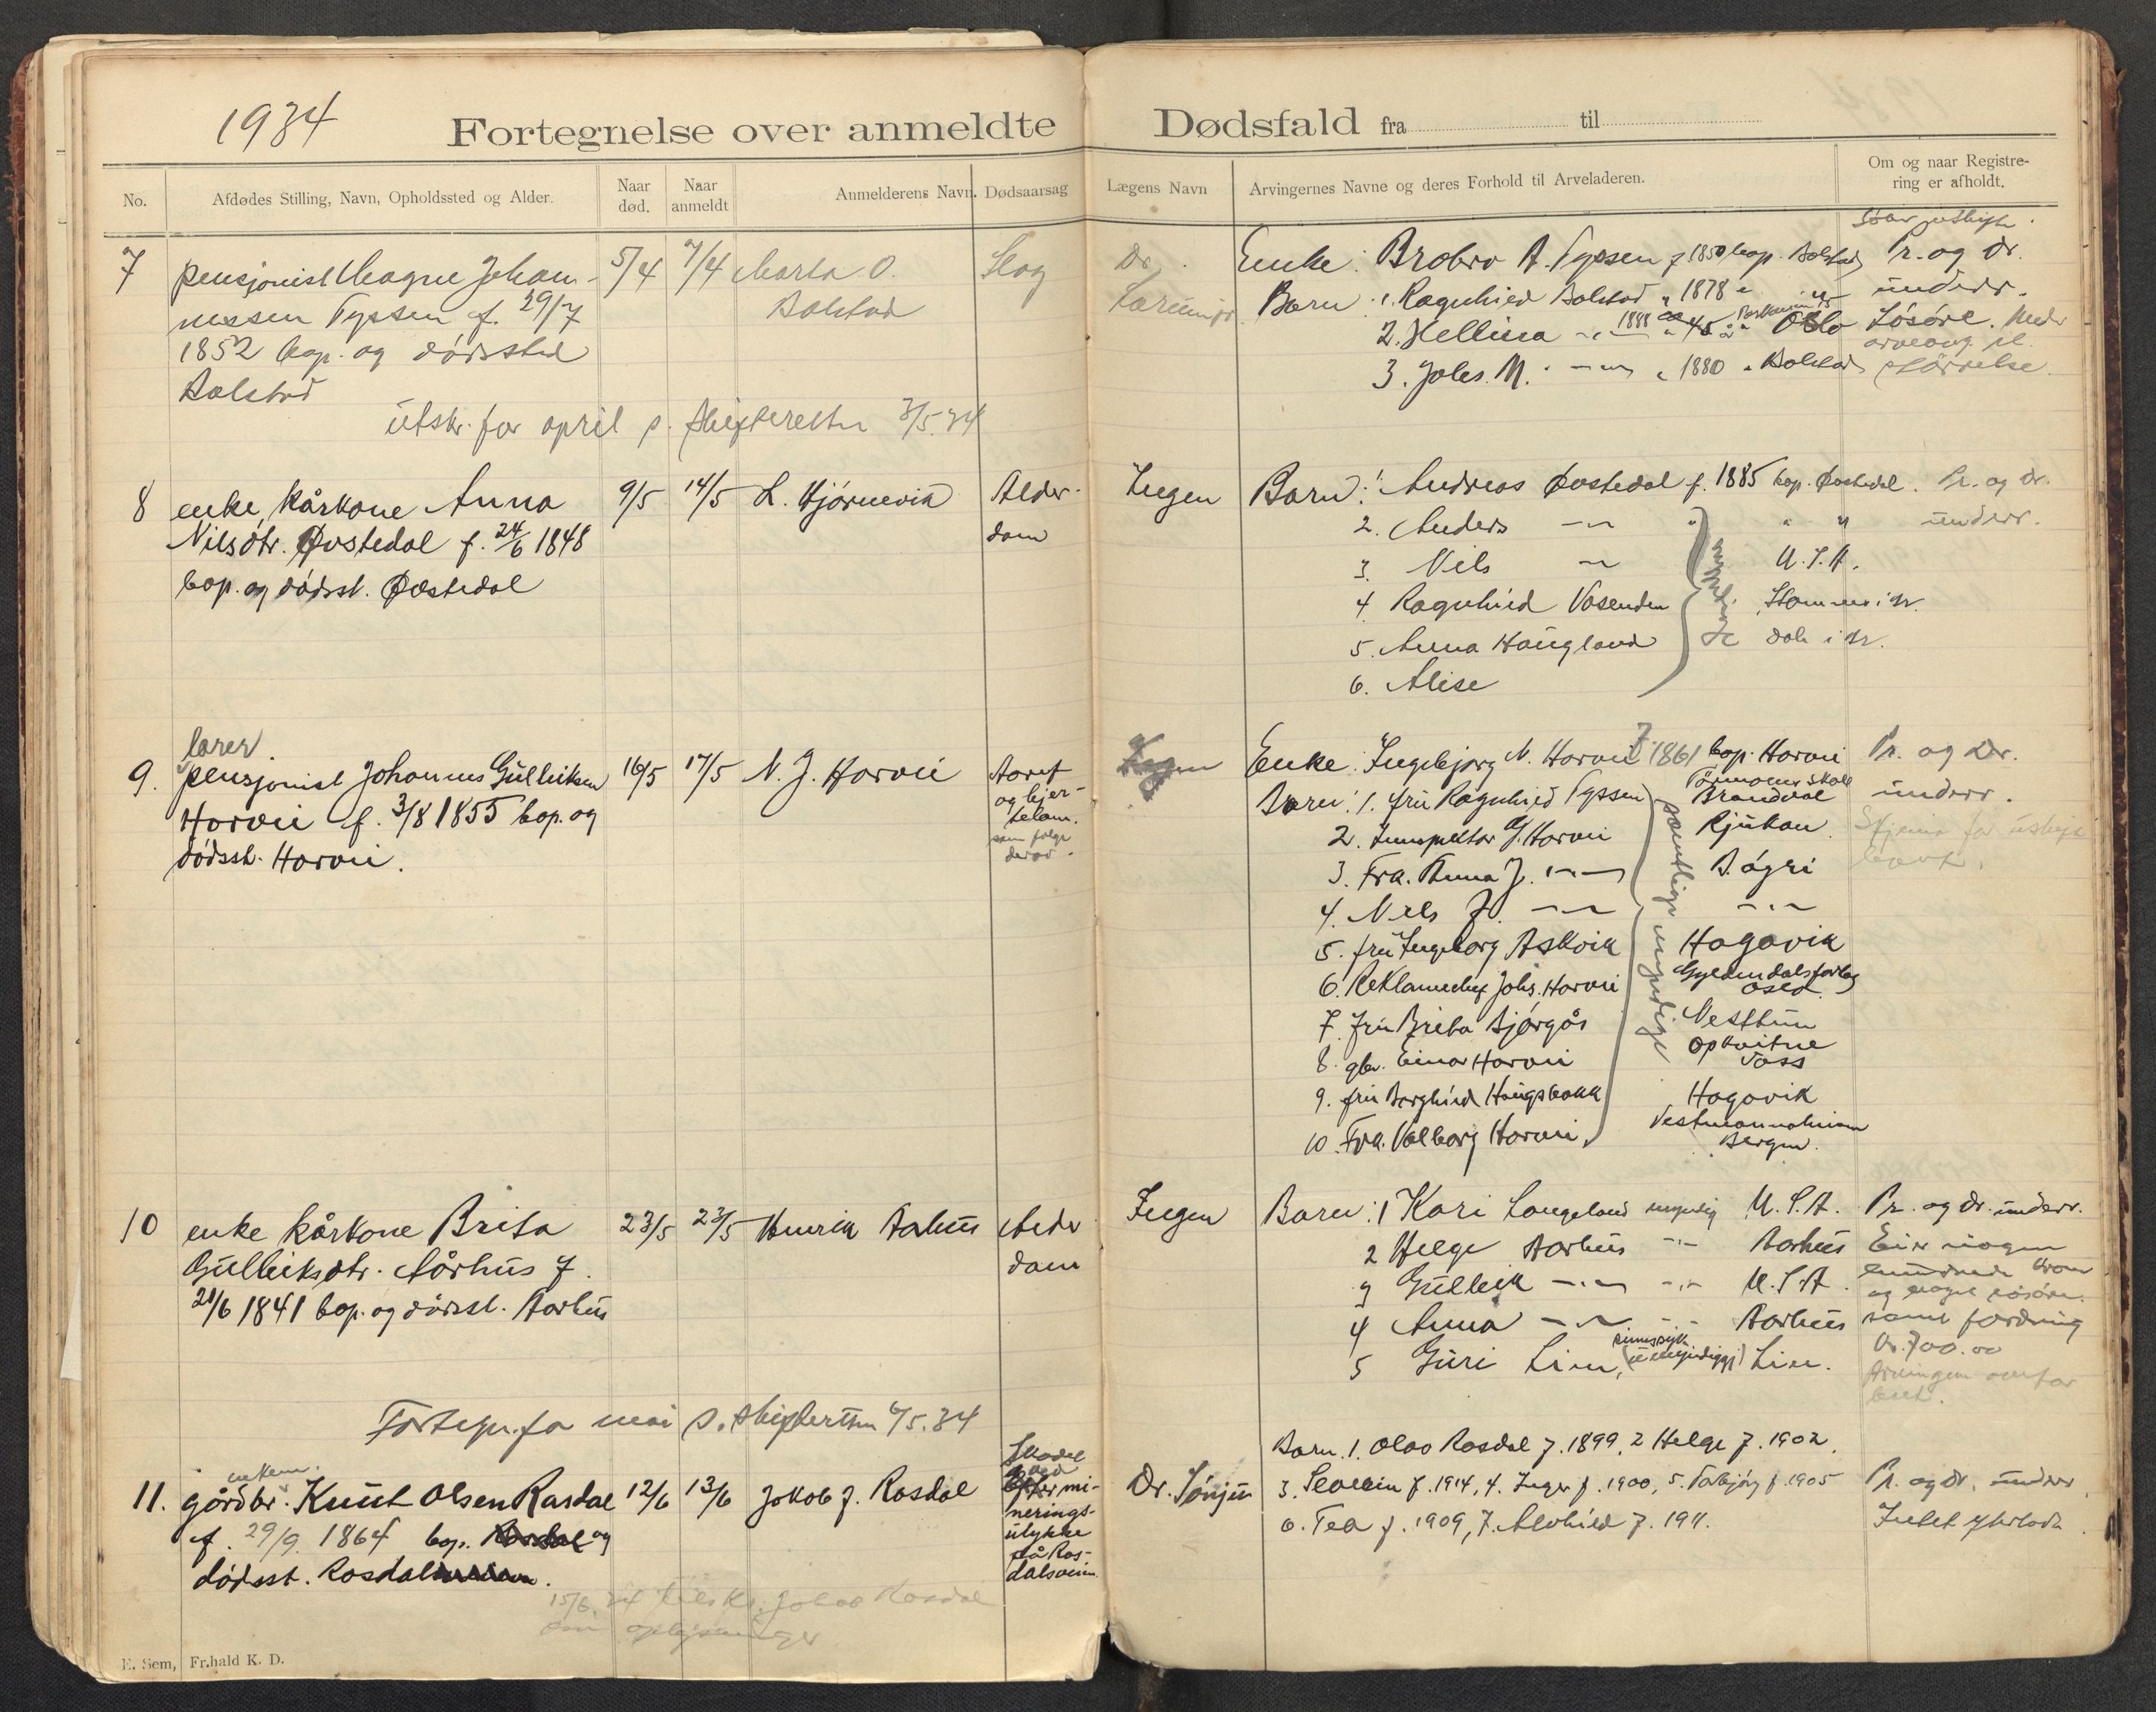 1934
Fortegnelse over anmeldte Dødsfald fra til
No.
Afdødes Stilling, Navn, Opholdssted og Alder.
Naar død.
Naar anmeldt
Anmelderens Navn.
Dødsaarsag
Lægens Navn
Arvingernes Navne og deres Forhold til Arveladeren.
Om og naar Registrering er afholdt.
7 pensjonist Magne Johan- 5/4 7/4 Marta O. Slag Dr.
nessen Tyssen f. 29/7 Bolstad
1852 bop. og dødssted
Bolstad
Enke: Brobro A. Tyssen f 1850 bop. Bolstad Pr. og Dr.
Barn: 1. Ragnhild Bolstad " 1878 " underr.
2. Mellina 1888 45 Oslo Løsøre.
3. Johs. M. " 1880 " Bolstad størrelse.
utskr. for april s. skifteretten 3/5.34
8 enke, kårkone Anna 9/5 14/5 L. Hjørnevik Alder- Ingen
Nilsdtr. Øvstedal f. 24/6 1848 dom
bop. og dødsst. Øvstedal
Barn: 1. Andreas Øvstedal f. 1885 bop. Øvstedal. Pr. og Dr.
2. Anders " " underr.
3. Nils U.S.A.
4 Ragnhild Vasenden
5. Anna Haugland
6. Alise
lærer
9. pensjonist Johannes Gulleiksen 16/5 17/5 N. J. Horvei
Horvei f. 3/8 1855 bop. og
dødsst. Horvei.
og hjer-
som følge
derav.
Enke: Ingebjørg N. Horvei f. 1861 bop. Horvei Pr. og Dr.
Barn: 1. fru Ragnhild Tyssen Brandvol underr.
2. Innspektør G. Horvei Rjukan
3. Frk. Anna J.
4. Nils J.
5. fru Ingeborg Askvik Hagavik
6. Reklamechef Johs. Horvei Gyldendals forlag
Oslo.
7. fru Brita Bjørgås Nesttun
8. gbr. Einar Horvei Opheim
Voss
9. fru Borghild Haugsbakk Hagavik
10. Frk. Valborg Horvei. Vestmannaheimen
Bergen.
samtlige myndige
10 enke kårkone Brita 23/5 23/5 Henrik Aarhus Alder Ingen
Gulleiksdtr. Aårhus f. dom
21/6 1841 bop. og dødsst. Aarhus
Barn: 1 Kari Langeland myndig U.S.A. Pr. og Dr. underr.
2 Helge Aarhus Aarhus Eier nogen
3 Gulleik U.S.A. hundrede kroner
4 Anna Aarhus samt fordring
5 Guri Lim, sinnssyk (umyndiggj) Lim. kr. 700.00
Fortegn. for mai s. skifteretten 6/5.34
enkem.
11. gårdbr. Knut Olsen Rasdal 12/6 13/6 Jakob J. Rasdal Dr. Sønju
f. 29/9 1864 bop. og
dødsst. Rasdal
Skadet
ved
mi-
nerings-
ulykke
på Ras-
dalsveien
Barn. 1. Olav Rasdal f. 1899, 2 Helge f. 1902,
3. f. 1914, 4. Inger f. 1900, 5. Torbjørg f. 1905 Pr. og Dr. underr.
6. Tea f. 1909, 7. Alvhild f. 1911. Intet efterlatt.
15/6 34 tilskr. Jakob Rasdal
om oplysninger
E. Sem, Fr.hald K. D.